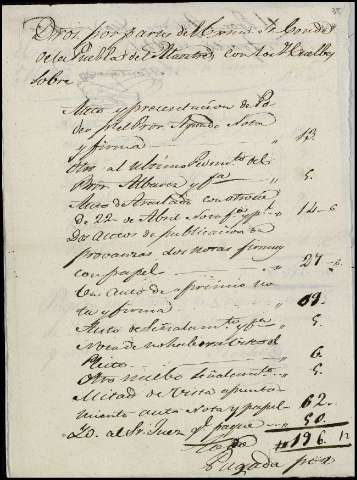 Dros. por parte del Exmo. Sr. Conde
de la Puebla del Maestre, con los
sobre
Auto y presentacion de Po-
der pr. el Pror. Nota
y firma 13.
Otro al ultimo Pedimto. del
Pror. Albarez y fa. 5.
Auto de traslado con otro de
de 22 de Abril Nota fa. y pl. 14..6
Dos autos de publicacion de
provanzas dos notas firmas
con papel 27..6
Un auto de apremio no
ta y firma 09.
Auto de señalamto. y fa. 5.
Nota de no haberse visto el
Pleito 6.
Otro nuebo señalamto. 5.
Mitad de Vista apunta-
miento auto Nota y papel 62.
Yd. al Sr. Juez q. pague 50.
#196. 12
Pagada por